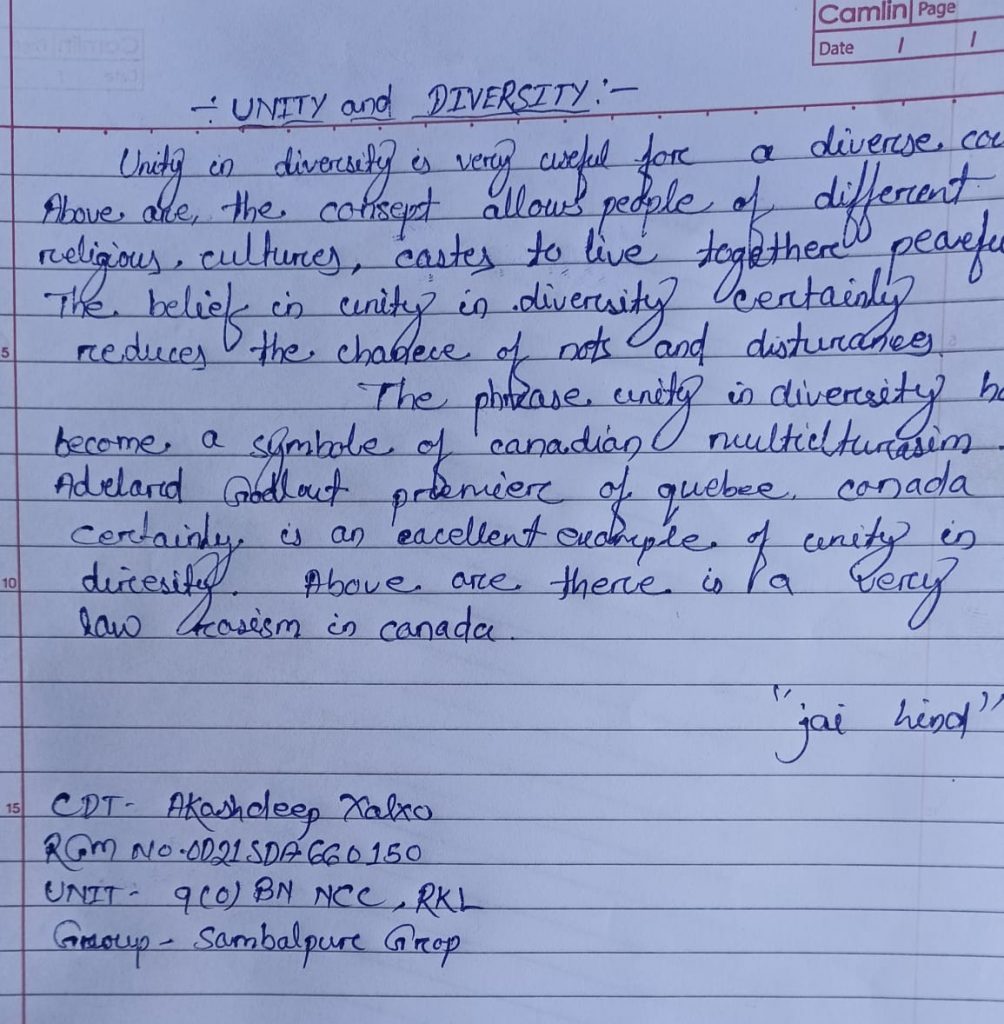 Camlin Page
Date / /
-: UNITY and DIVERSITY :-
Unity in diversity is very useful fore a diverse cou
Above are, the consept allows people of different
religious, cultures, castes to live togethere peacefu
The belief in unity in diversity certainly
5 reduces the chabece of nots and disturances
The phrase unity in diversity ha
become a symbole of canadian multicturasim.
Adelard Godlout premiere of quebee, canada
certainly is an eacellent example of unity in
10 diresity. Above are there is a very
law rasism in canada.
"jai hind"
15 CDT- Akashdeep Xalxo
RGM NO.OD21SDA660150
UNIT- 9(O) BN NCC, RKL
Group- Sambalpure Grop